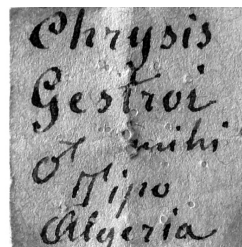 Chrysis
Gestroi
♂ mihi
Tipo
Algeria